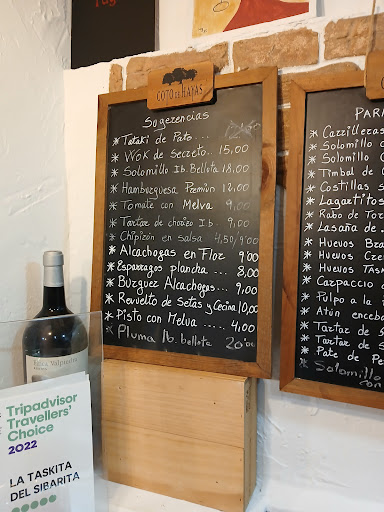 COTO DE HAYAS
Sugerencias
* Tataki de Pato...
* Wok de Secreto.. 15,00
* Solomillo Ib. Bellota 18.00
* Hamburguesa Premium 12,00
* Tomate con Melva 9,00
* Tartar de chorizo Ib. 9,00
* Chipirón en salsa 4,50/9'00
* Alcachogas en Flor 9'00
* Esparragos plancha... 8,00
* Búrguer Alcachogas... 9,00
* Revuelto de Setas y Cecina 10,00
* Pisto con Melva ..... 4,00
* Pluma Ib. bellota 20'00
PAR
* Carrilleras
* Solomillo
* Solomillo
* Timbal de
* Costillas
* Lagartitos
* Rabo de Toro
* Lasaña de
* Huevos
* Huevos
* Huevos
* Carpaccio
* Pulpo a la
* Atún
* Tartar de
* Tartar de
* Pate de
* Solomillo
Tripadvisor
Travellers'
Choice
2022
LA TASKITA
DEL SIBARITA